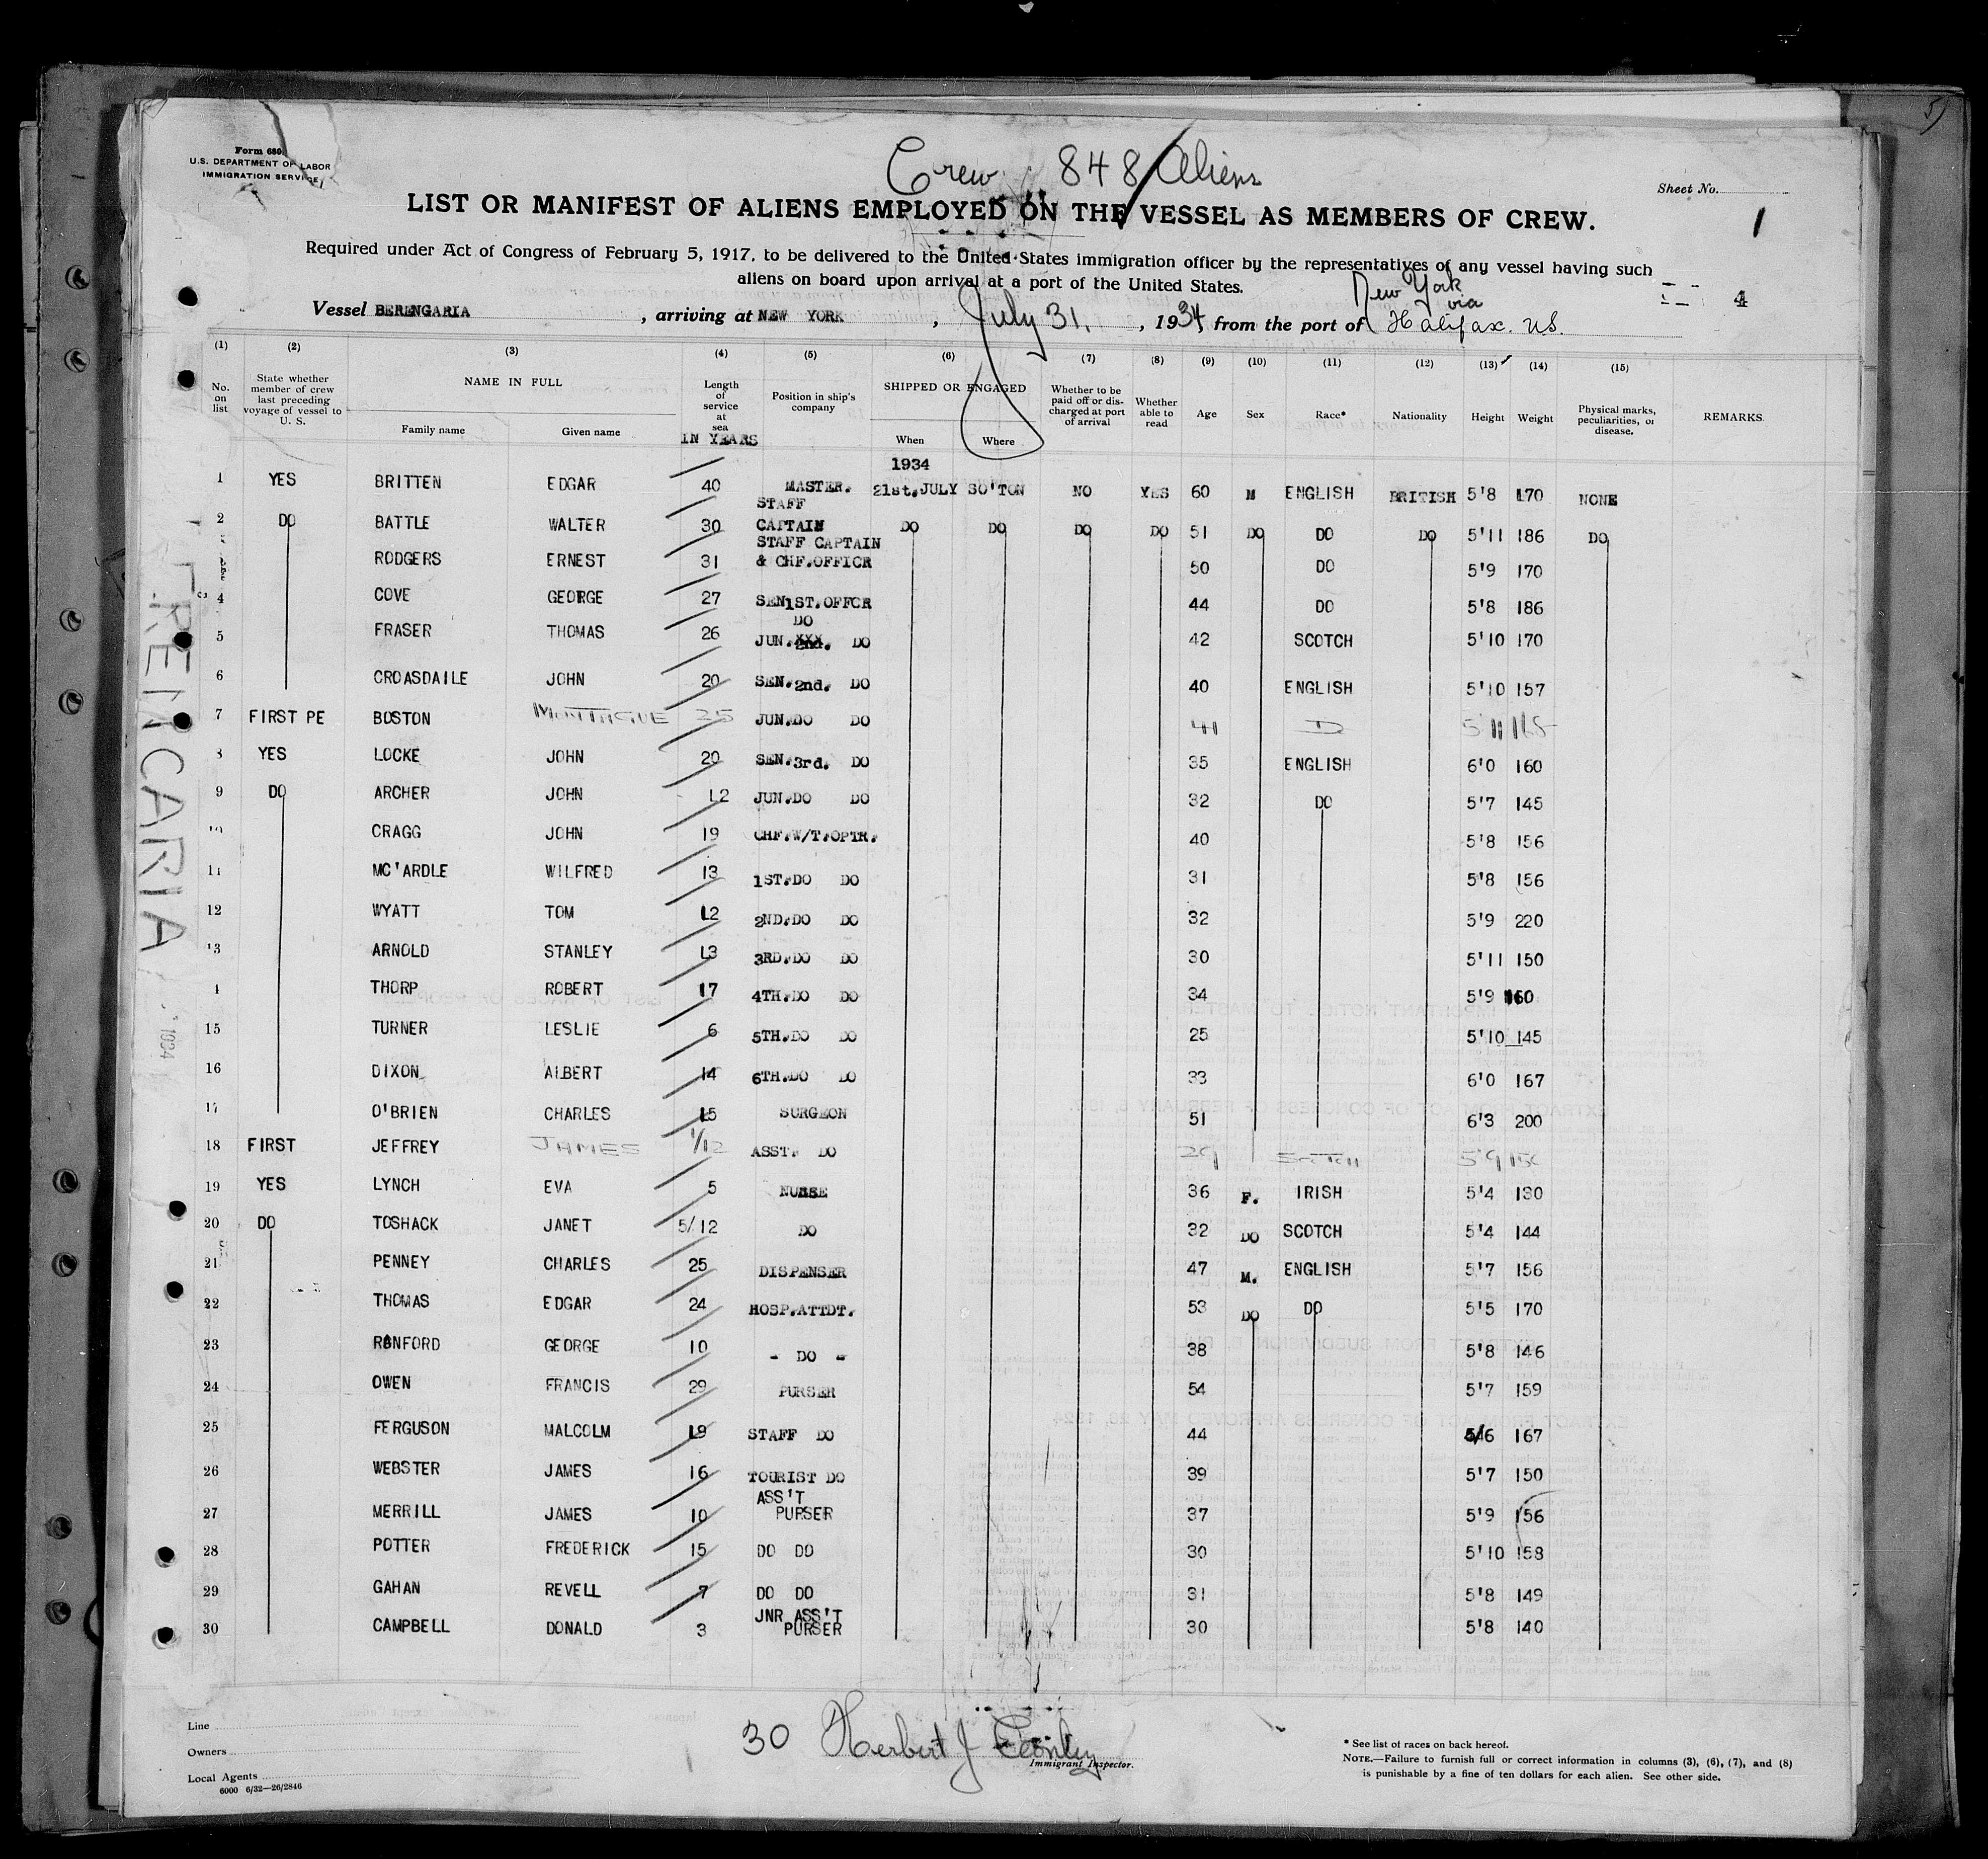 Crew 848 Aliens
Form 680
U.S. DEPARTMENT OF LABOR
IMMIGRATION SERVICE
Sheet No.
1
LIST OR MANIFEST OF ALIENS EMPLOYED ON THE VESSEL AS MEMBERS OF CREW.
Required under Act of Congress of February 5, 1917, to be delivered to the United States immigration officer by the representatives of any vessel having such
aliens on board upon arrival at a port of the United States.
4
New York
via
Vessel BERENGARIA, arriving at NEW YORK, July 31, 1934 from the port of Halifax. NS.
(1) (2) (3) (4) (5) (6) (7) (8) (9) (10) (11) (12) (13) (14) (15)
No. on list State whether member of crew last preceding voyage of vessel to U. S. NAME IN FULL Family name Given name Length of service at sea IN YEARS Position in ship's company SHIPPED OR ENGAGED When Where Whether to be paid off or discharged at port of arrival Whether able to read Age Sex Race* Nationality Height Weight Physical marks, peculiarities, or disease. REMARKS
1934
1 YES BRITTEN EDGAR 40 MASTER. 21st.JULY SO'TON NO YES 60 M ENGLISH BRITISH 5'8 170 NONE
2 DO BATTLE WALTER 30 STAFF CAPTAIN DO DO DO DO 51 DO DO DO 5'11 186 DO
RODGERS ERNEST 31 STAFF CAPTAIN & CHF.OFFICR 50 DO 5'9 170
4 COVE GEORGE 27 SEN1ST.OFFCR 44 DO 5'8 186
5 FRASER THOMAS 26 JUN. DO DO 42 SCOTCH 5'10 170
6 CROASDAILE JOHN 20 SEN.2nd. DO 40 ENGLISH 5'10 157
7 FIRST PE BOSTON MONTAGUE 25 JUN.DO DO 41 D 5 11 165
8 YES LOCKE JOHN 20 SEN.3rd. DO 35 ENGLISH 6'0 160
9 DO ARCHER JOHN 12 JUN.DO DO 32 DO 5'7 145
10 CRAGG JOHN 19 CHF.W/T.OPTR. 40 5'8 156
11 MC'ARDLE WILFRED 13 1ST.DO DO 31 5'8 156
12 WYATT TOM 12 2ND.DO DO 32 5'9 220
13 ARNOLD STANLEY 13 3RD.DO DO 30 5'11 150
THORP ROBERT 17 4TH.DO DO 34 5'9 160
15 TURNER LESLIE 6 5TH.DO DO 25 5'10 145
16 DIXON ALBERT 14 6TH.DO DO 33 6'0 167
17 O'BRIEN CHARLES 15 SURGEON 51 6'3 200
18 FIRST JEFFREY JAMES 1/12 ASST. DO 29 SCOTCH 5'9 150
19 YES LYNCH EVA 5 NURSE 36 F. IRISH 5'4 130
20 DO TOSHACK JANET 5/12 DO 32 DO SCOTCH 5'4 144
21 PENNEY CHARLES 25 DISPENSER 47 M. ENGLISH 5'7 156
22 THOMAS EDGAR 24 HOSP.ATTDT. 53 DO DO 5'5 170
23 RANFORD GEORGE 10 - DO - 38 5'8 146
24 OWEN FRANCIS 29 PURSER 54 5'7 159
25 FERGUSON MALCOLM 19 STAFF DO 44 5/6 167
26 WEBSTER JAMES 16 TOURIST DO 39 5'7 150
27 MERRILL JAMES 10 ASS'T PURSER 37 5'9 156
28 POTTER FREDERICK 15 DO DO 30 5'10 158
29 GAHAN REVELL 7 DO DO 31 5'8 149
30 CAMPBELL DONALD 3 JNR ASS'T PURSER 30 5'8 140
BERENGARIA
Line
Owners
Local Agents
6000 6/32—26/2846
30 Herbert J
Immigrant Inspector.
* See list of races on back hereof.
NOTE.—Failure to furnish full or correct information in columns (3), (6), (7), and (8)
is punishable by a fine of ten dollars for each alien. See other side.